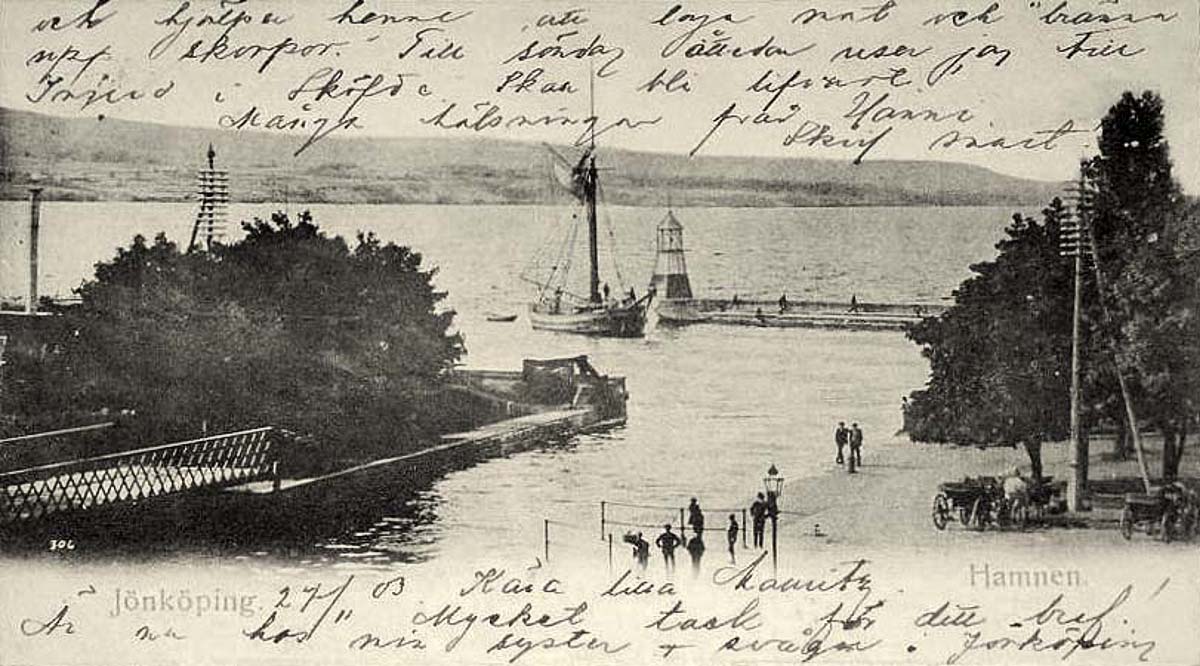 och hjälpa henne att laga mat och "bränna
upp" skorpor. Till söndag åttedar reser jag till
i Sköfde. Skall bli lifvat.
Många hälsningar från Hanni.
Skrif snart.
306
Jönköping.
Hamnen.
27/ 03 Kära lilla Mauritz
Mycket tack för ditt bref!
Är nu hos min syster + svåger i Jönköping